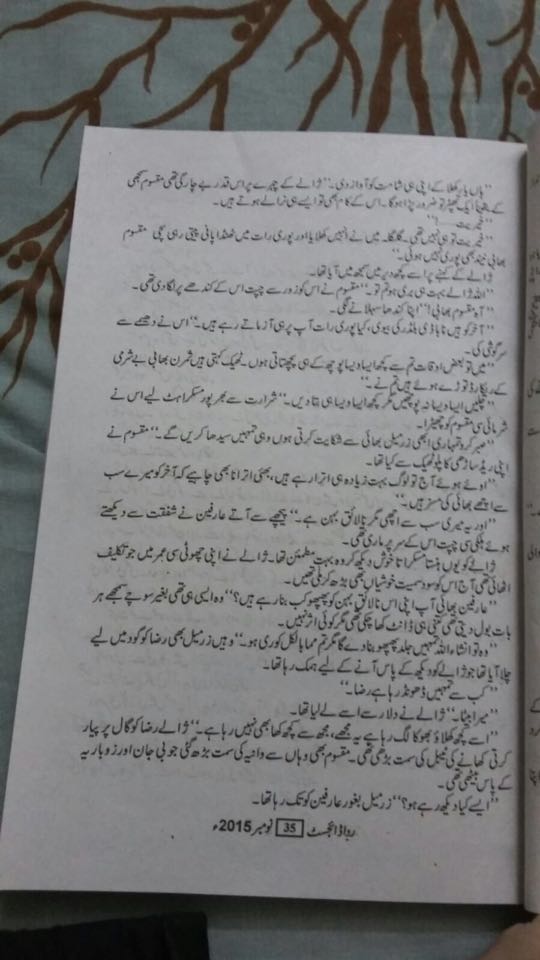 ”ہاں یار کھلا کے اپنی ہی شامت کو آواز دی۔“ ژالے کے چہرے پر اس قدر بے چارگی تھی مقسوم سمجھی
کے یقیناً ایک تھپڑ تو ضرور پڑا ہوگا۔ اس کے کام بھی تو ایسے ہی نرالے ہوتے ہیں۔
”خیریت......!“
”خیریت تو ہی نہیں تھی۔ میں نے انہیں کھلایا اور پوری رات میں ٹھنڈا پانی پیتی رہی سچی مقسوم
بھابی نیند بھی پوری نہیں ہوئی۔“
ژالے کے کہنے پر اسے کچھ دیر میں سمجھ میں آیا تھا۔
”اللہ ژالے بہت ہی بری ہو تم تو۔“ مقسوم نے اس کو زور سے چپت اس کے کندھے پر لگا دی تھی۔
”آہ مقسوم بھابی!“ اپنا کندھا سہلانے لگی۔
”آخر کو ہیں نا باڈی بلڈر کی بیوی، کیا پوری رات آپ پر ہی آزماتے رہے ہیں۔“ اس نے دھیمے سے
سرگوشی کی۔
”میں تو بعض اوقات تم سے کچھ ایسا ویسا پوچھ کے ہی پچھتاتی ہوں۔ ٹھیک کہتی ہیں ثمرن بھابی بے شرمی
کے ریکارڈ توڑے ہوئے ہیں تم نے۔“
”چلیں ایسا ویسا نہ پوچھیں مگر کچھ ایسا ویسا ہی بتا دیں۔“ شرارت سے بھرپور مسکراہٹ لیے اس نے
شرمائی سی مقسوم کو چھیڑا۔
”صبر کرو تمہاری ابھی زرمیل بھائی سے شکایت کرتی ہوں وہی تمہیں سیدھا کریں گے۔“ مقسوم نے
اپنی ریڈ ساڑھی کا پلو ٹھیک سے کیا تھا۔
”اوئے ہوئے آج تو لوگ بہت زیادہ ہی اترا رہے ہیں، بھئی اترانا بھی چاہیے کہ آخر کو میرے سب
سے اچھے بھائی کی مسز ہیں۔“
”اور یہ میری سب سے اچھی مگر نالائق بہن ہے۔“ پیچھے سے آتے عارفین نے شفقت سے دیکھتے
ہوئے ہلکی سی چپت اس کے سر پر ماری تھی۔
ژالے کو یوں ہنستا مسکراتا خوش دیکھ کر وہ بہت مطمئن تھا۔ ژالے نے اپنی چھوٹی سی عمر میں جو تکلیف
اٹھائی تھی آج اس کو سود سمیت خوشیاں بھی بڑھ کر ملی تھیں۔
”عارفین بھائی آپ اپنی اس نالائق بہن کو پھپھو کب بنا رہے ہیں؟“ وہ ایسی ہی تھی بغیر سوچے سمجھے ہر
بات بول دیتی تھی کتنی ہی ڈانٹ کھا چکی تھی مگر کوئی اثر نہیں۔
”وہ تو انشاء اللہ تمہیں جلد پھپھو بنا دے گا مگر تم مما بالکل کوری ہو۔“ وہیں زرمیل بھی رضا کو گود میں لیے
چلا آیا تھا جو ژالے کو دیکھ کے پاس آنے کے لیے ہمک رہا تھا۔
”کب سے تمہیں ڈھونڈ رہا ہے رضا۔“
”میرا بیٹا۔“ ژالے نے دلار سے اسے لے لیا تھا۔
”اسے کچھ کھلاؤ بھوکا لگ رہا ہے یہ مجھے، مجھ سے کچھ کھا بھی نہیں رہا ہے۔“ ژالے رضا کو گال پر پیار
کرتی کھانے کی ٹیبل کی سمت بڑھی تھی۔ مقسوم بھی وہاں سے دانیہ کی سمت بڑھ گئی جو بی جان اور زوباریہ
کے پاس بیٹھی تھی۔
”ایسے کیا دیکھ رہے ہو؟“ زرمیل بغور عارفین کو تک رہا تھا۔
ردا ڈائجسٹ 35 نومبر 2015ء